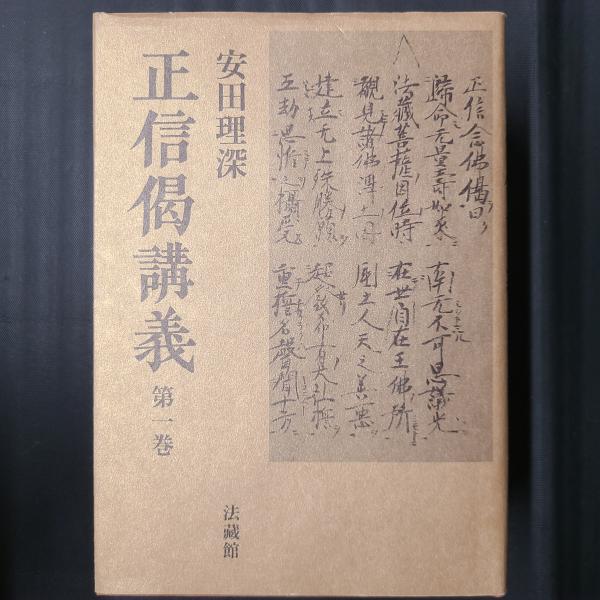 正信念佛偈曰
歸命无量壽如来 南无不可思議光
法藏菩薩因位時 在世自在王佛所
覩見諸佛淨土因 國土人天之善惡
建立无上殊勝願 超發希有大弘誓
五劫思惟之攝受 重誓名聲聞十方
安田理深
法藏館
正信偈講義 第一巻